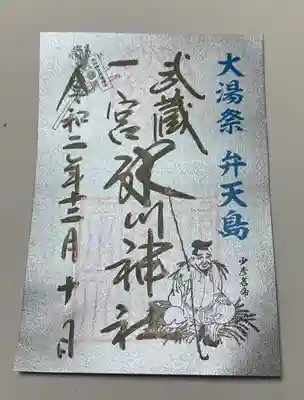 大湯祭 弁天島
武蔵
一宮 氷川神社
令和二年十二月十日
少彦名命